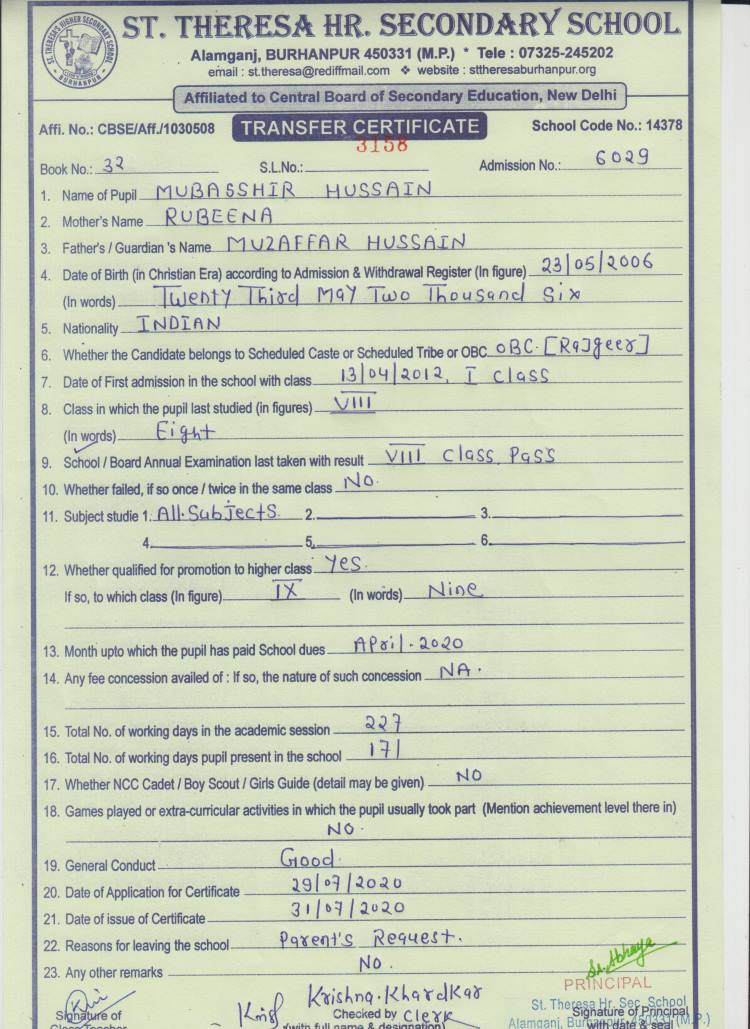 ST. THERESA HR. SECONDARY SCHOOL
Alamganj, BURHANPUR 450331 (M.P.) * Tele : 07325-245202
email : st.theresa@rediffmail.com ❖ website : sttheresaburhanpur.org
Affiliated to Central Board of Secondary Education, New Delhi
Affi. No.: CBSE/Aff./1030508 TRANSFER CERTIFICATE School Code No.: 14378
3158
Book No.: 32 S.L.No.: Admission No.: 6029
1. Name of Pupil MUBASSHIR HUSSAIN
2. Mother's Name RUBEENA
3. Father's / Guardian 's Name MUZAFFAR HUSSAIN
4. Date of Birth (in Christian Era) according to Admission & Withdrawal Register (In figure) 23/05/2006
(In words) Twenty Third May Two Thousand Six
5. Nationality INDIAN
6. Whether the Candidate belongs to Scheduled Caste or Scheduled Tribe or OBC OBC. [Rajgeer]
7. Date of First admission in the school with class 13/04/2012, I Class
8. Class in which the pupil last studied (in figures) VIII
(In words) Eight
9. School / Board Annual Examination last taken with result VIII Class Pass
10. Whether failed, if so once / twice in the same class NO.
11. Subject studie 1. All.Subjects 2. 3.
4. 5. 6.
12. Whether qualified for promotion to higher class Yes.
If so, to which class (In figure) IX (In words) Nine
13. Month upto which the pupil has paid School dues April. 2020
14. Any fee concession availed of : If so, the nature of such concession NA.
15. Total No. of working days in the academic session 227
16. Total No. of working days pupil present in the school 171
17. Whether NCC Cadet / Boy Scout / Girls Guide (detail may be given) NO
18. Games played or extra-curricular activities in which the pupil usually took part (Mention achievement level there in)
NO.
19. General Conduct Good.
20. Date of Application for Certificate 29/07/2020
21. Date of issue of Certificate 31/07/2020
22. Reasons for leaving the school Parent's Request.
23. Any other remarks NO.
PRINCIPAL
Krishna. Khardkar
St. Theresa Hr. Sec. School
Signature of Checked by Clerk Signature of Principal
Alamganj, Burhanpur, 450331 (M.P.)
Class Teacher (with full name & designation) with date & seal